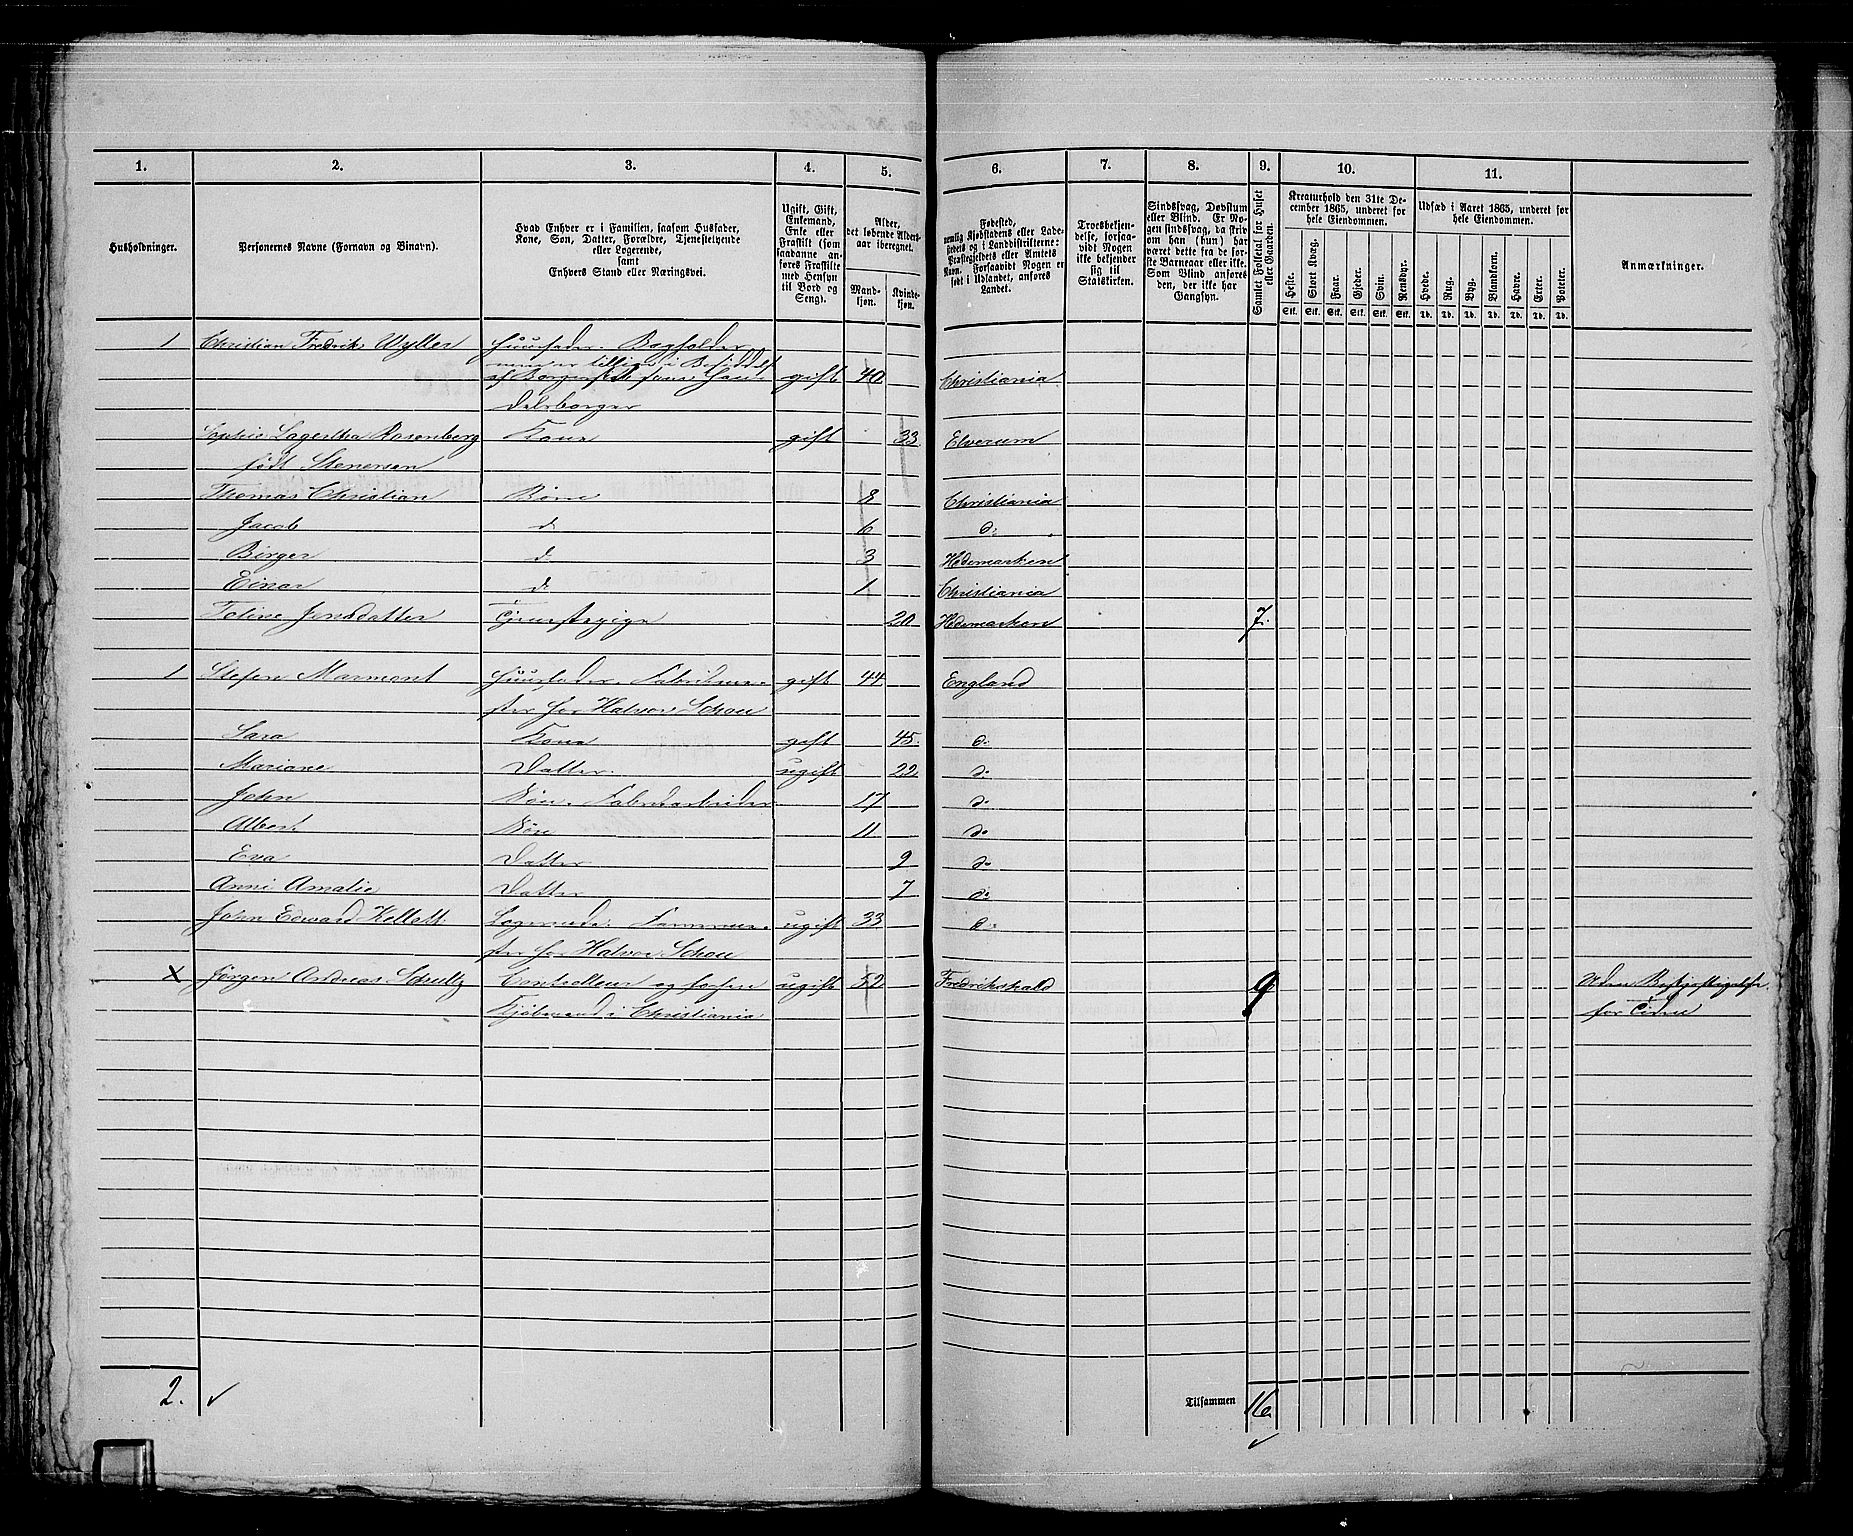 1. 2. 3. 4. 5. 6. 7. 8. 9. 10. 11.
Husholdninger.
Personernes Navne (Fornavn og Binavn).
Hvad Enhver er i Familien, saasom Husfader,
Kone, Søn, Datter, Forældre, Tjenestetyende
eller Logerende,
samt
Enhvers Stand eller Næringsvei.
Ugift, Gift,
Enkemand,
Enke eller
Fraskilt (som
saadanne an-
føres Fraskilte
med Hensyn
til Bord og
Seng).
Alder,
det løbende Alders-
aar iberegnet.
Mand-
kjøn.
Kvinde-
kjøn.
Fødested,
nemlig Kjøbstadens eller Lade-
stedets og i Landdistrikterne:
Præstegjeldets eller Amtets
Navn. Forsaavidt Nogen er
født i Udlandet, anføres
Landet.
Troesbekjen-
delse, forsaa-
vidt Nogen
ikke bekjender
sig til
Statskirken.
Sindssvag, Døvstum
eller Blind. Er No-
gen sindssvag, da skriv
om han (hun) har
været dette fra de før-
ste Barneaar eller ikke.
Som Blind anføres
den, der ikke har
Gangsyn.
Samlet Folketal for Huset
eller Gaarden.
Kreaturhold den 31te De-
cember 1865, underet for
hele Eiendommen.
Heste. Stort Kvæg. Faar. Gjeder. Svin. Rensdyr.
Stk. Stk. Stk. Stk. Stk. Stk.
Udsæd i Aaret 1865, underet for
hele Eiendommen.
Hvede. Rug. Byg. Blandkorn. Havre. Erter. Poteter.
Td. Td. Td. Td. Td. Td. Td.
Anmærkninger.
1 Christian Fredrik Wyller Huusfader. Bogholder
men er tillige i Besiddelse
af gift 40 Christiania
delsborger
Sophie Lagertha Rosenberg Kone gift 33 Elverum
født Stenersen
Thomas Christian Børn 8 Christiania
Jacob d 6 do
Birger d 3 Hedemarken
Einar d 1 Christiania
Toline Jensdatter Tjenestepige 20 Hedemarken 7.
1 Stefen Marmont Huusfader. Fabrikme- gift 44 England
ster for Halvor Schou
Sara Kone gift 45 do
Mariane Datter. ugift 22 do
John Søn. Fabrikarbeider 17 do
Albert Søn 11 do
Eva Datter 9 do
Anni Amalie Datter 7 do
John Edward Kellett Logerende. ugift 33 do
ster for Halvor Schou
x Jørgen Andreas Schultz Controlleur og forhen ugift 52 Fredrikshald 9 Uden Beskjæftigelse
Kjøbmand i Christiania for Tiden
2. ✓
Tilsammen 16.
✓